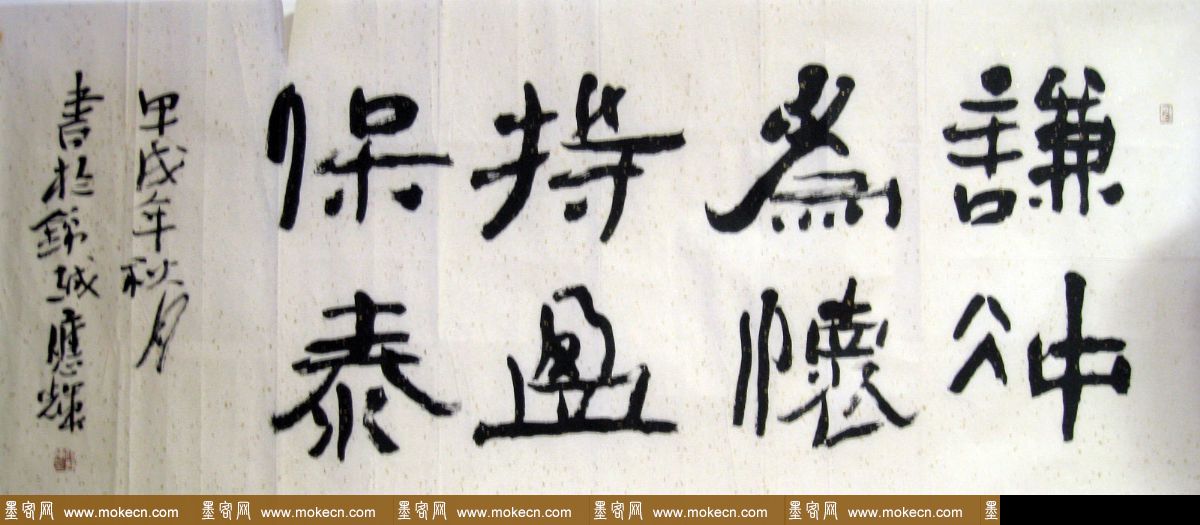 謙冲
為懷
持盈
保泰
甲戌年秋月
書於錦城應輝
墨客网 www.mokecn.com 墨客网 www.mokecn.com 墨客网 www.mokecn.com 墨客网 www.mokecn.com 墨客网 www.mokecn.com 墨客